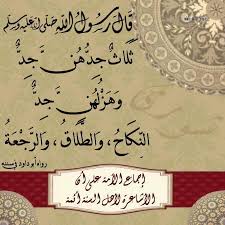 قال رسول الله صلى الله عليه وسلم
ثلاث جدهن جد
وهزلهن جد
النكاح، والطلاق، والرجعة
رواه أبو داود في سننه
إجماع الأمة على أن
الأشاعرة لأهل السنة أئمة